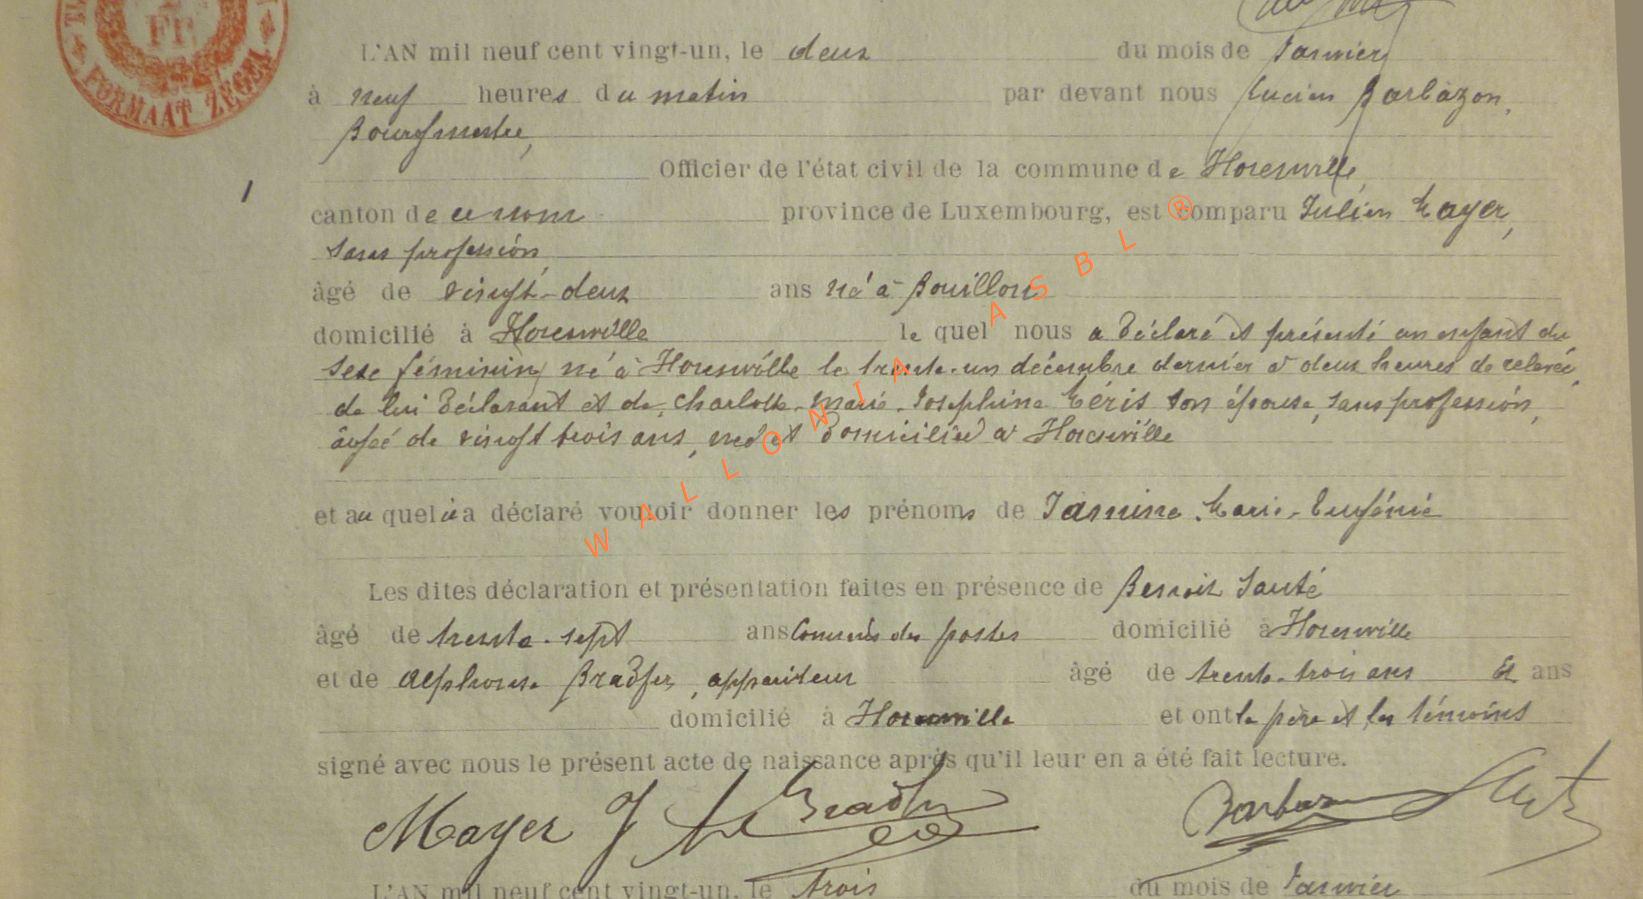 FORMAAT ZEGEL
L'AN mil neuf cent vingt-un, le deux du mois de Janvier
à neuf heures du matin par devant nous Lucien Barbazon,
Bourgmestre,
Officier de l'état civil de la commune de Houdemont
1
canton de ce nom province de Luxembourg, est comparu Julien Mayer,
sans profession,
âgé de vingt-deux ans né à Bouillon
domicilié à le quel nous a déclaré et présenté un enfant du
sexe féminin, né à le trente-un décembre dernier à deux heures de relevée,
de lui déclarant et de Charlotte-Marie-Joséphine son épouse, sans profession,
âgée de vingt trois ans, née et domiciliée à
et auquel il a déclaré vouloir donner les prénoms de Jeannine-Marie-Eugénie
Les dites déclaration et présentation faites en présence de Benoit
âgé de trente-sept ans Commis des postes domicilié à
et de Alphonse Bradfer, appariteur âgé de trente-trois ans Et ans
domicilié à et ont le père et les témoins
signé avec nous le présent acte de naissance après qu'il leur en a été fait lecture.
Mayer J A Bradfer Barbazon
L'AN mil neuf cent vingt-un, le trois du mois de Janvier
WALLONIA ASBL ®